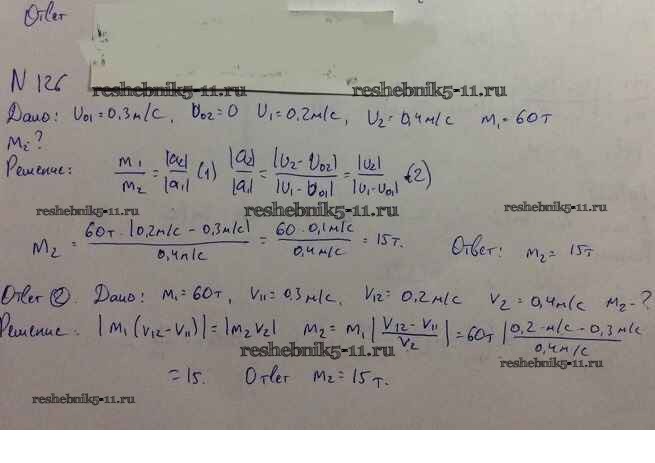 Ответ
N 126
reshebnik5-11.ru reshebnik5-11.ru
Дано: U₀₁=0,3м/с, U₀₂=0 U₁=0,2м/с, U₂=0,4м/с m₁=60т
M₂?
Решение: m₁/m₂ = |a₂|/|a₁| (1) |a₂|/|a₁| = |U₂-U₀₂|/|U₁-U₀₁| = |U₂|/|U₁-U₀₁| (2)
reshebnik5-11.ru reshebnik5-11.ru reshebnik5-11.ru
M₂ = 60т·|0,2м/с - 0,3м/с|/0,4м/с = 60·0,1м/с/0,4м/с = 15т. Ответ: m₂= 15т
Ответ 2. Дано: m₁=60т, V₁₁=0,3м/с, V₁₂=0,2м/с V₂=0,4м/с m₂-?
Решение. |m₁(V₁₂-V₁₁)|=|m₂V₂| m₂=m₁|V₁₂-V₁₁/V₂|=60т|0,2-м/с-0,3м/с/0,4м/с
reshebnik5-11.ru reshebnik5-11.ru
=15. Ответ m₂=15т.
reshebnik5-11.ru reshebnik5-11.ru